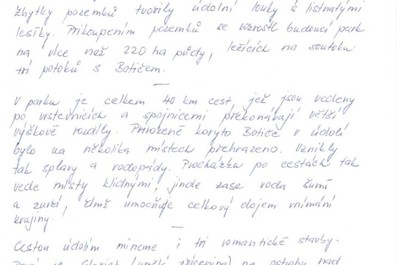 zbytky pozemků tvořily údolní louky s listnatými
lesíky. Přikoupením pozemků se vzrostl budoucí park
na více než 220 ha půdy, ležících na soutoku
tří potoků s Botičem.
—
V parku je celkem 40 km cest, jež jsou vedeny
po vrstevnicích a spojnicemi překonávají větší
výškové rozdíly. Přirozené koryto Botiče v údolí
bylo na několika místech přehrazeno. Vznikly
tak splavy a vodopády. Procházka po cestách tak
vede místy klidnými, jinde zase voda šumí
a zurčí, čímž umocňuje celkový dojem vnímání
krajiny.
—
Cestou údolím mineme i tři romantické stavby.